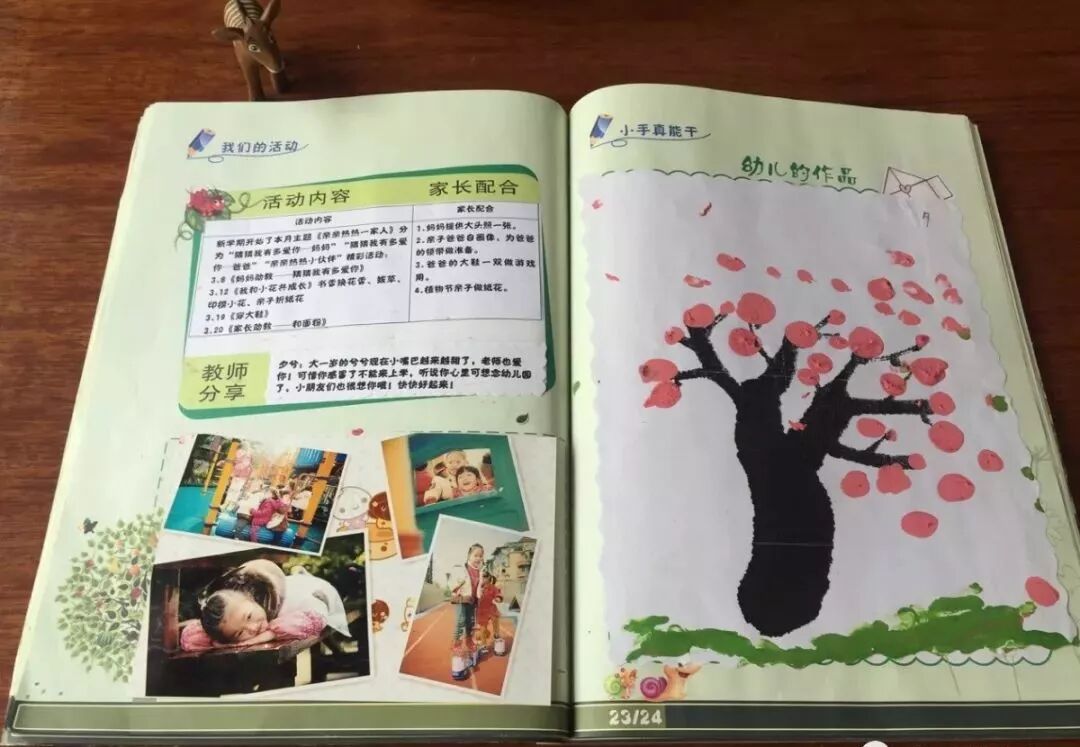 我们的活动
活动内容 家长配合
活动内容
新学期开始了本月主题《亲亲热热一家人》分
为“猜猜我有多爱你—妈妈”“猜猜我有多爱
你—爸爸”“亲亲热热小伙伴”精彩活动:
3.8《妈妈助教——猜猜我有多爱你》
3.12《我和小花共成长》书香换花香、
印模小花、亲子折纸花
3.19《穿大鞋》
3.20《家长助教——和面粉》
家长配合
1.妈妈提供大头照一张。
2.亲子爸爸自画像,为爸爸
的领带做准备。
3.爸爸的大鞋一双做游戏
用。
4.植物节亲子做纸花。
教师
分享
少兮:大一岁的兮兮现在小嘴巴越来越甜了,老师也爱
你!可惜你感冒了不能来上学,听说你心里可想念幼儿园
了,小朋友们也很想你哦!快快好起来!
小手真能干
幼儿的作品
月
23/24